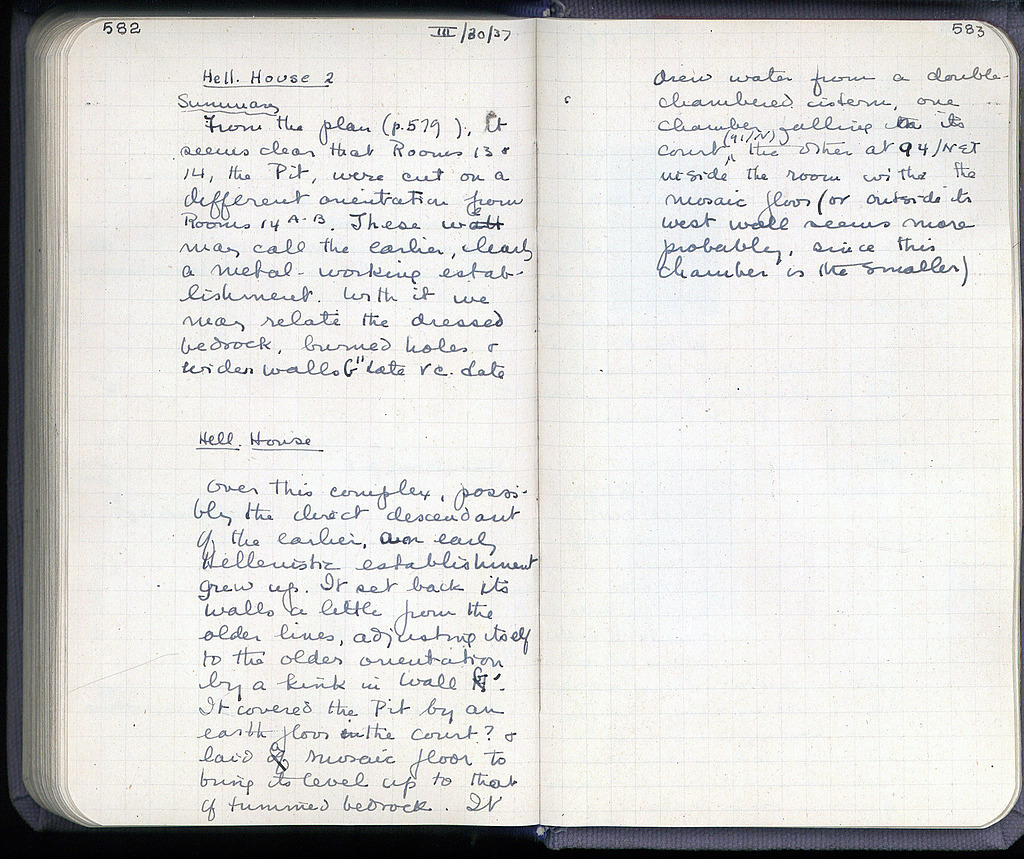 582
III/30/37
Hell. House 2
Summary
From the plan (p.579), it
seems clear that Rooms 13 &
14, the Pit, were cut on a
different orientation from
Rooms 14 A-B. These we
may call the earlier, clearly
a metal-working estab-
lishment. With it we
may relate the dressed
bedrock, burned holes &
wider walls late V c. date
Hell. House
Over this complex, possi-
bly the direct descendant
of the earlier, an early
Hellenistic establishment
grew up. It set back its
walls a little from the
older lines, adjusting itself
to the older orientation
by a kink in wall
It covered the Pit by an
earth floor in the court? &
laid a mosaic floor to
bring its level up to that
of trimmed bedrock. It
583
drew water from a double-
chambered cistern, one
chamber falling in its
court (91/N), the other at 94/NET
inside the room with the
mosaic floor (or outside its
west wall seems more
probably, since this
chamber is the smaller)